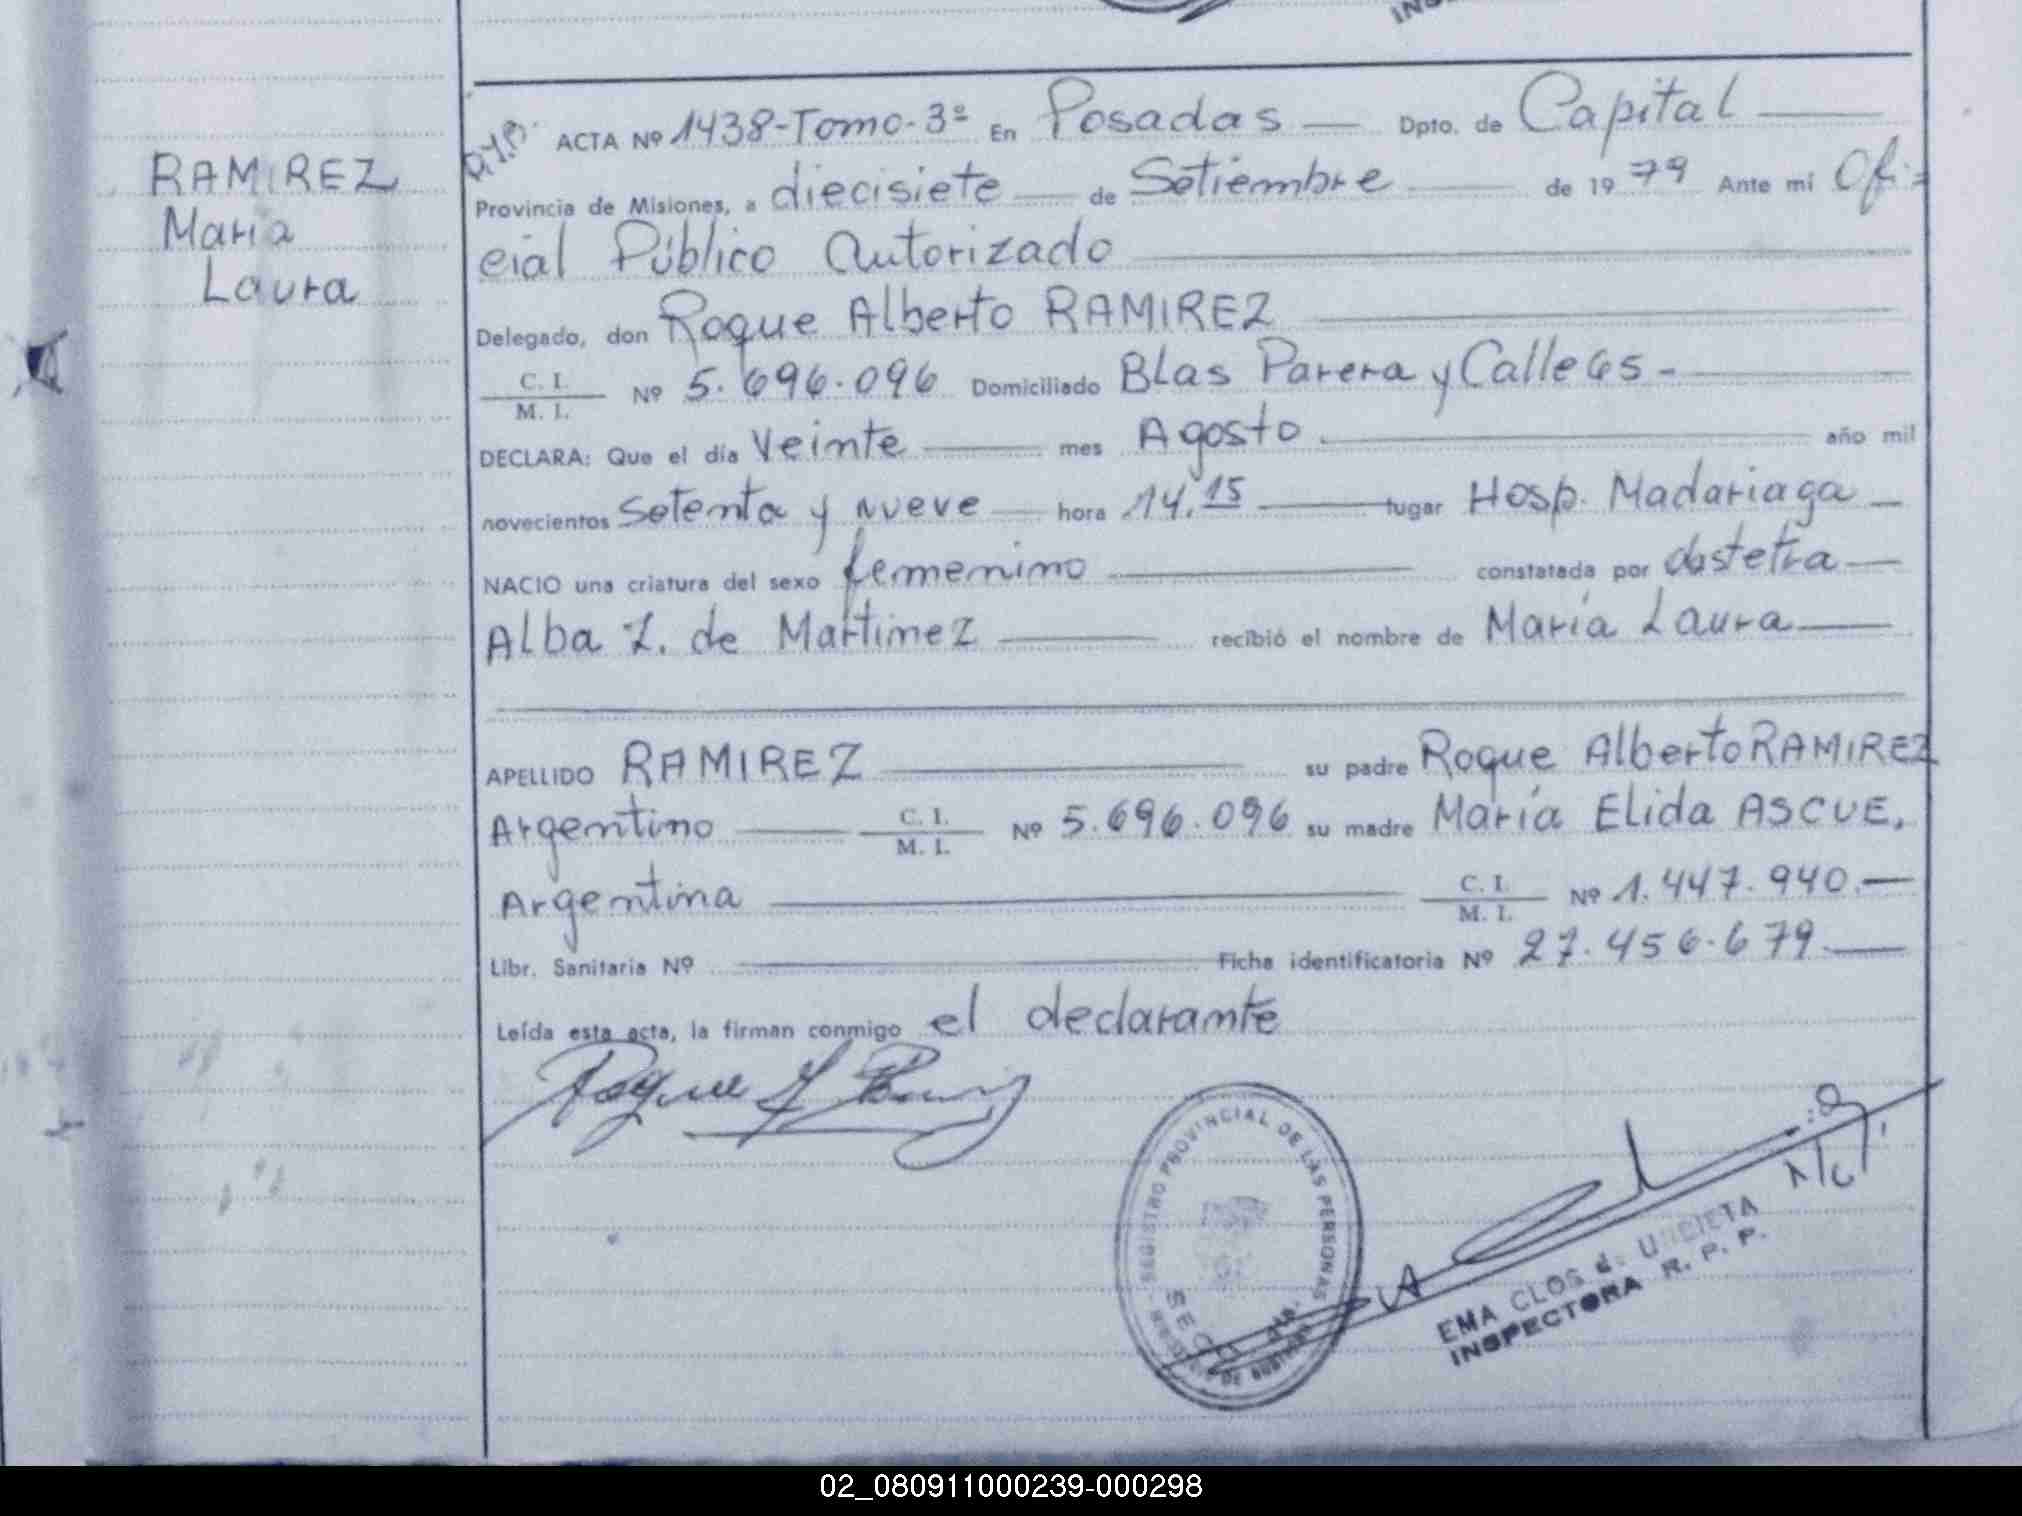 RAMIREZ
María
Laura
ACTA Nº 1438-Tomo-3º En Posadas — Dpto. de Capital —
Provincia de Misiones, a diecisiete — de Setiembre — de 1979 Ante mí Ofi=
cial Público Autorizado —
Delegado, don Roque Alberto RAMIREZ —
C. I. / M. I. Nº 5.696.096 Domiciliado Blas Parera y Calle 65 - —
DECLARA: Que el día Veinte — mes Agosto — año mil
novecientos setenta y nueve — hora 14.15 — lugar Hosp. Madariaga —
NACIO una criatura del sexo femenino — constatada por obstetra —
Alba Z. de Martinez — recibió el nombre de María Laura —
APELLIDO RAMIREZ — su padre Roque Alberto RAMIREZ
Argentino — C. I. / M. I. Nº 5.696.096 su madre María Elida ASCUE,
Argentina — C. I. / M. I. Nº 1.447.940.—
Libr. Sanitaria Nº — Ficha identificatoria Nº 27.456.679.—
Leída esta acta, la firman conmigo el declarante
Roque
REGISTRO PROVINCIAL DE LAS PERSONAS
EMA CLOS de
INSPECTORA R. P. P.
02_080911000239-000298